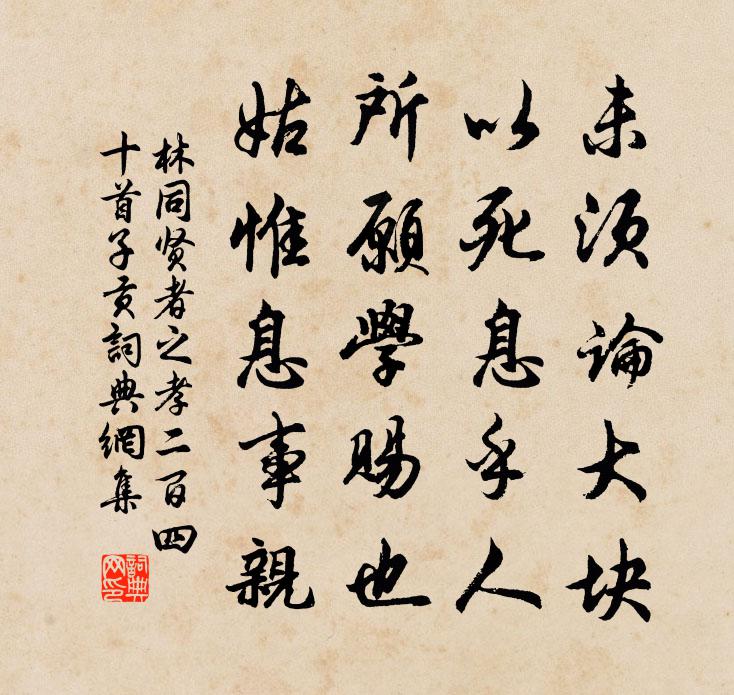 未須論大块
以死息乎人
所願學賜也
姑惟息事親
林同贤者之孝二百四
十首子贡詞典網集
詞典网印